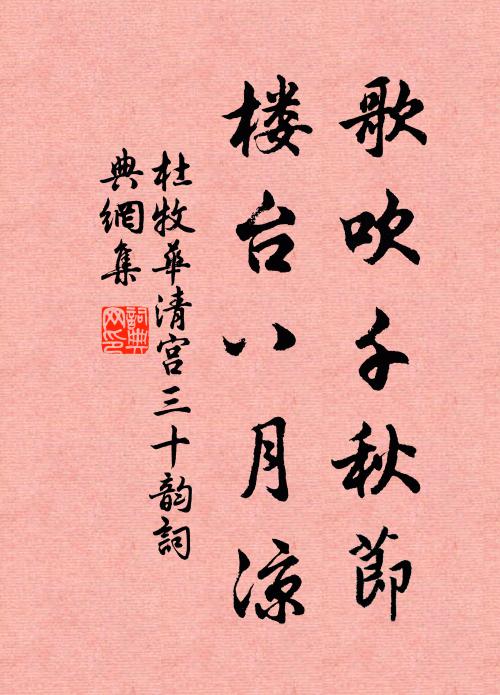 歌吹千秋節
楼台八月凉
杜牧華清宮三十韵詞
典網集
詞典
网印